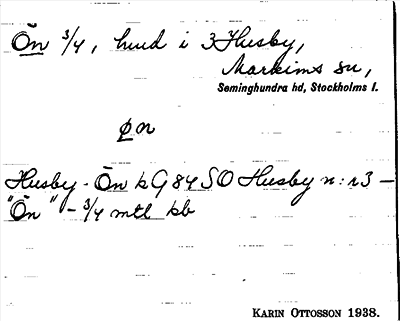 Ön 3/4, hud i 3 Husby,
Markims sn,
Seminghundra hd, Stockholms l.
øn
Husby-Ön kG84SO Husby n:r3 –
"Ön" – 3/4 mtl kb
KARIN OTTOSSON 1938.